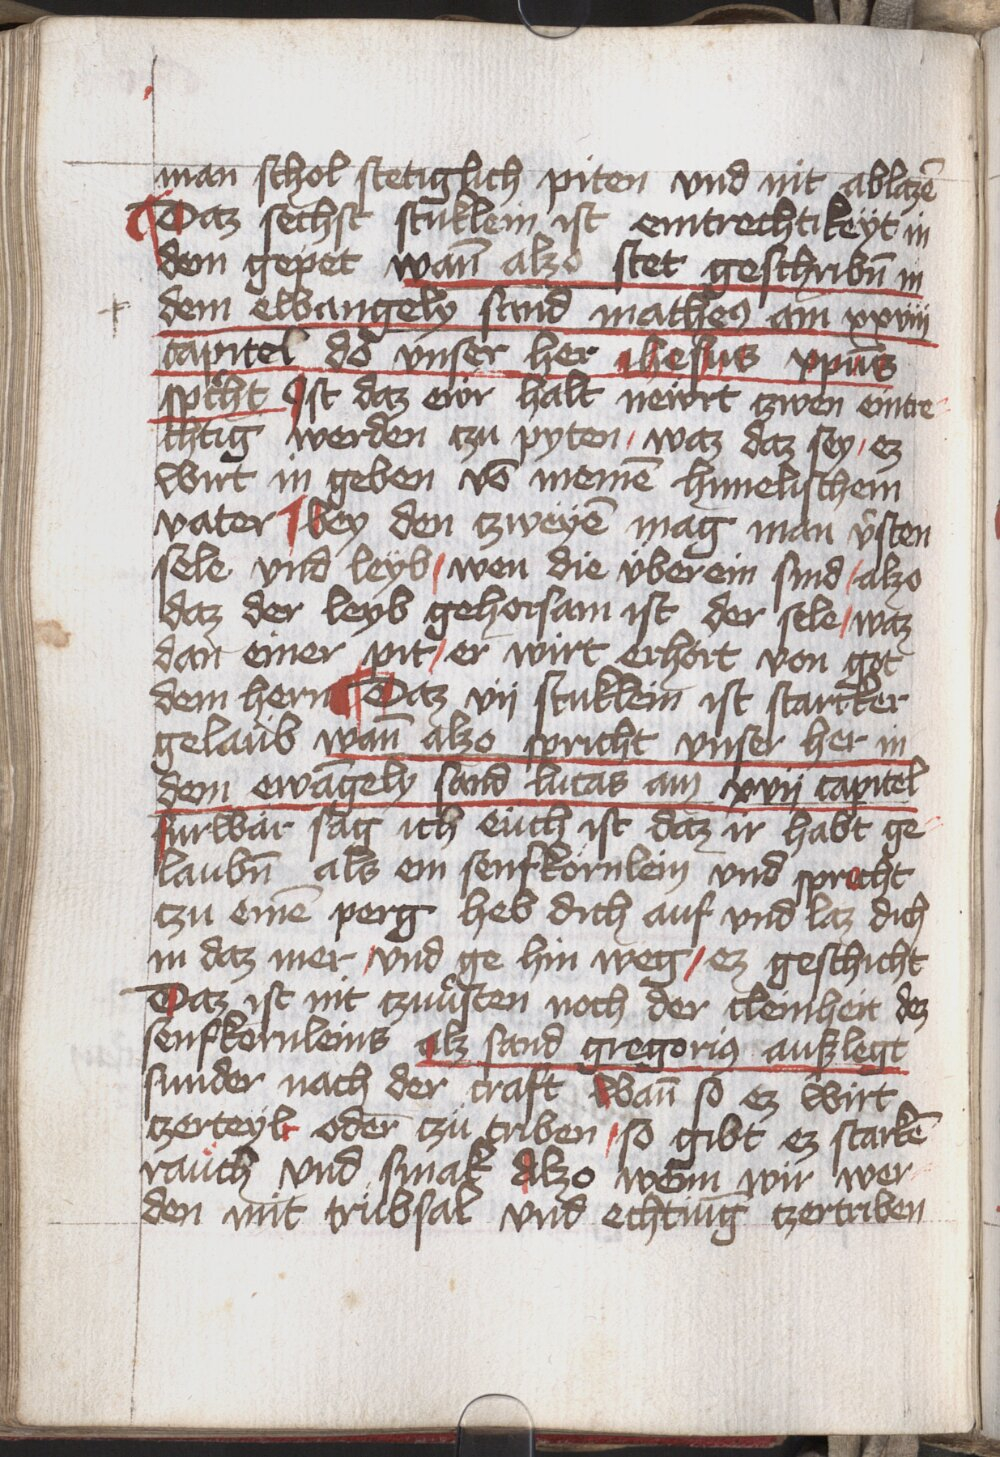 man schol stetiglich piten vnd nit ablazē
Daz sechst stuklein ist eintrechtikeÿt in
dem gepet wañ alzo stet geschribn̄ in
dem ewangely sand matheus am xxviij
capitel do vnser her ihesus xp̄us
spricht Ist daz ewr halt newrt czwen eintre
chtig werden czu pyten / waz daz sey / ez
wirt in geben vō meinē himelischem
vater bey den czweyē mag man v̓sten
sele vnd leÿb / wen die v̈berein sind / alzo
daz der leyb gehorsam ist der sele / waz
dan einer pit / er wirt erhort von got
dem hern Daz vij stuklein ist starcker
gelaub wañ alzo spricht vnser her in
dem ewāgely sand lucas am xvij capitel
furwar sag ich euch ist daz ir habt ge
laubn̄ als ein senfkornlein vnd sprecht
czu einē perg heb dich auf vnd laz dich
in daz mer / vnd ge hin weg / ez geschicht
Daz ist nit czuu̓sten noch der cleinheit dez
senfkornleins alz sand gregorius auszlegt
sunder nach der craft Wañ so ez wirt
czerteylt oder czu triben / so gibt ez starkē
rauch vnd smak Alzo wenn wir wer
den mit trubsal vnd echtung czertriben